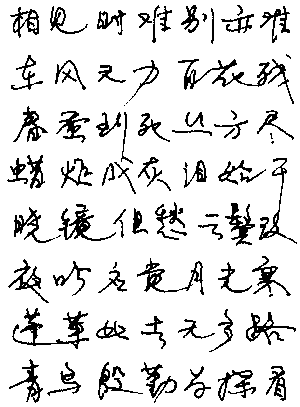 相见时难别亦难
东风无力百花残
春蚕到死丝方尽
蜡炬成灰泪始干
晓镜但愁云鬓改
夜吟各觉月光寒
蓬莱此去无多路
青鸟殷勤为探看